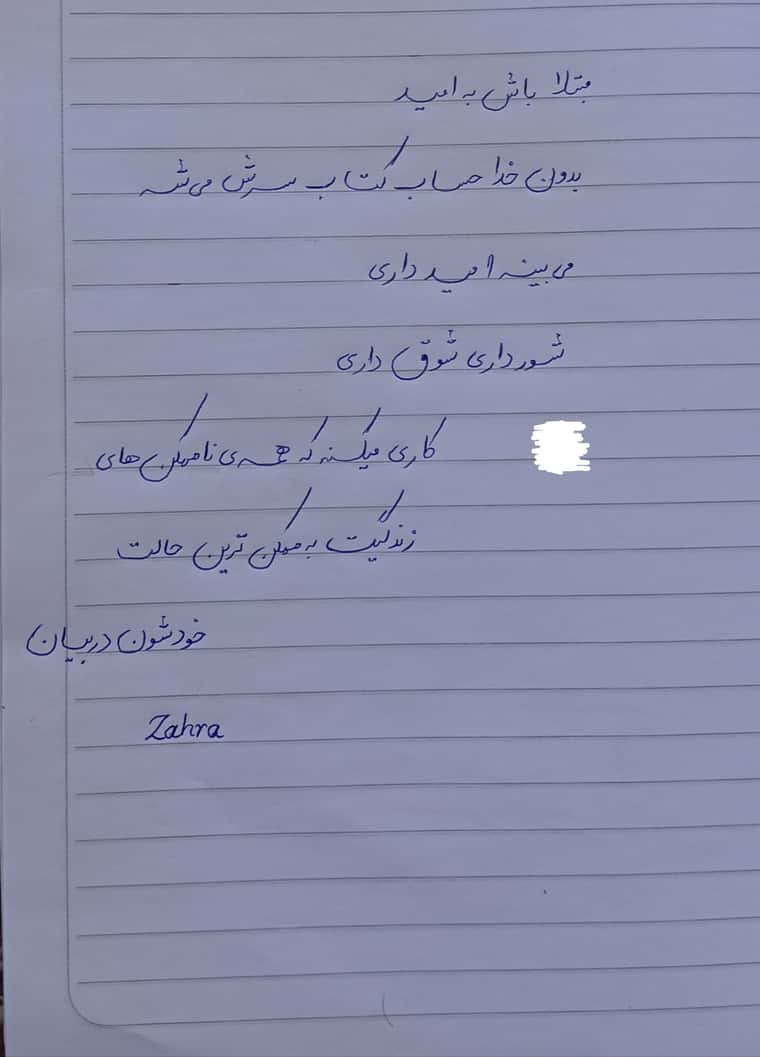 مبتلا باش به امید
بدون خدا حساب کتاب سرش می شه
می بینه امید داری
شور داری شوق داری
کاری میکنه که همه ی ناممکن های
زندگیت به ممکن ترین حالت
خودشون در بیان
Zahra